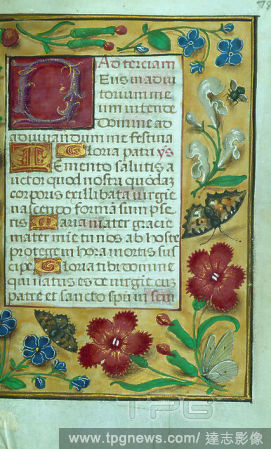 78
Ad terciam
Deus in adiu
torium me
um intende
Domine ad
adiuvandum me festina
Gloria patri ys
Memento salutis a
uctor quod nostra quodaz
corporis ex illibata virgie
nascendo formā sumpse
ris Maria mater gracie
mater mie tu nos ab hoste
protege in hora mortis sus
cipe Gloria tibi domine
qui natus es de virgie cuz
patre et sancto spū in sem
TPG
www.tpgnews.com/達志影像